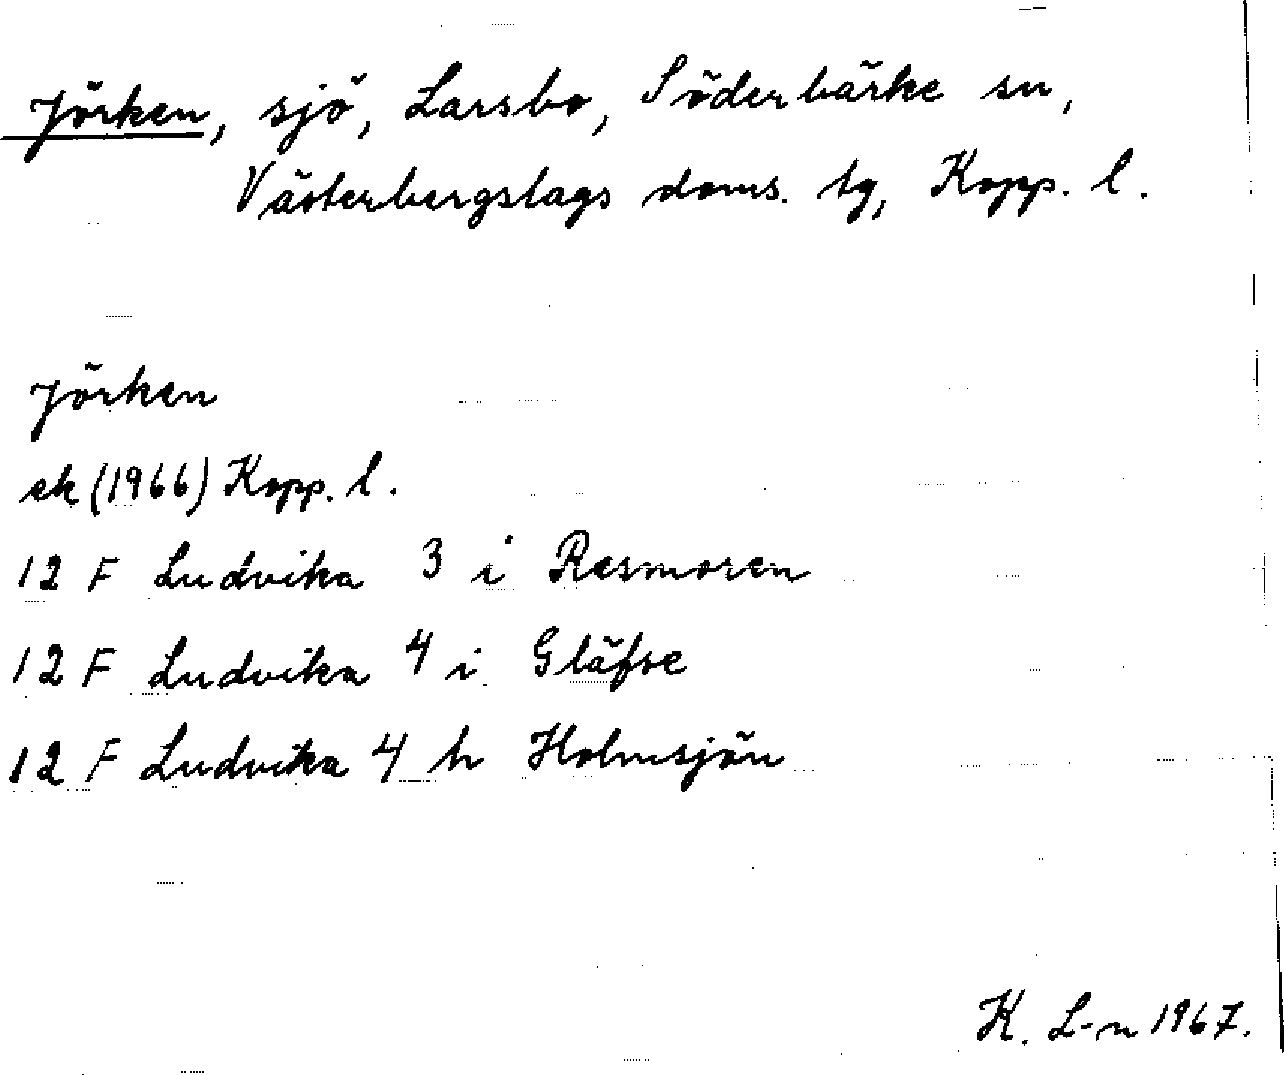 Jörken, sjö, Larsbo, Söderbärke sn,
Västerbergslags doms. tg, Kopp. l.
Jörken
ek (1966) Kopp. l.
12 F Ludvika 3 i Resmoren
12 F Ludvika 4 i Gläfse
12 F Ludvika 4 h Holmsjön
K. L-n 1967.